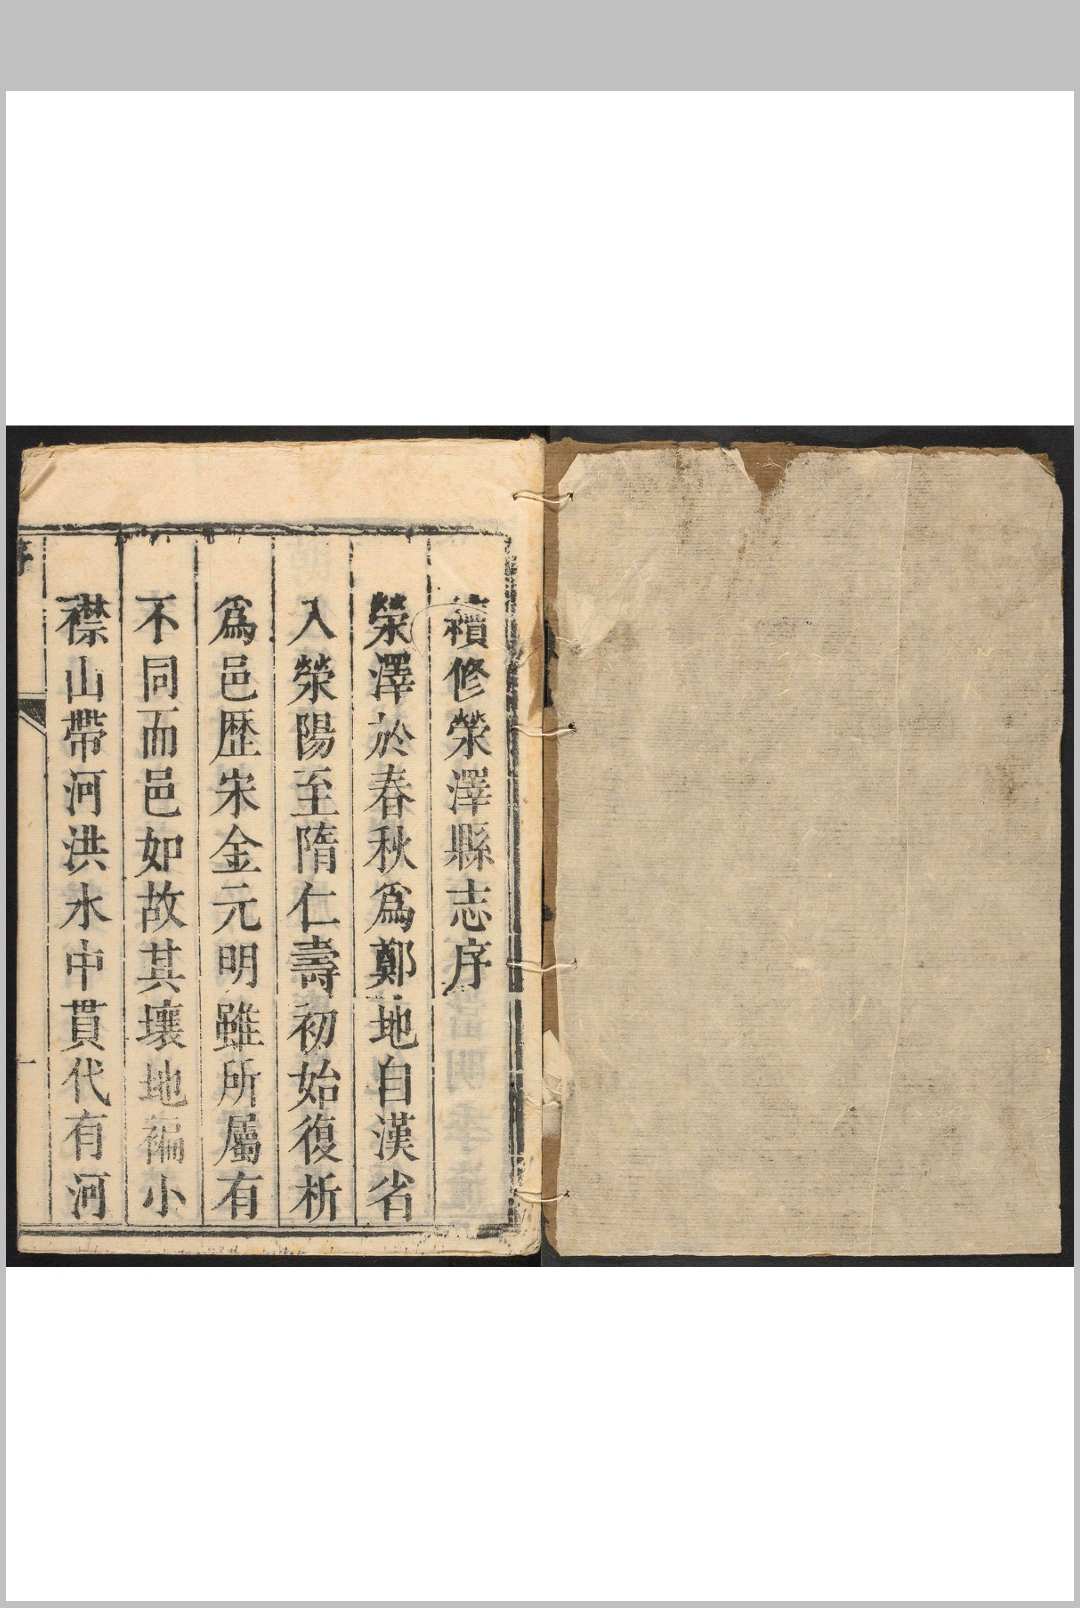 續修滎澤縣志序
滎澤於春秋爲鄭地自漢省
入滎陽至隋仁壽初始復析
爲邑歷宋金元明雖所屬有
不同而邑如故其壤地褊小
襟山帶河洪水中貫代有河
序
一